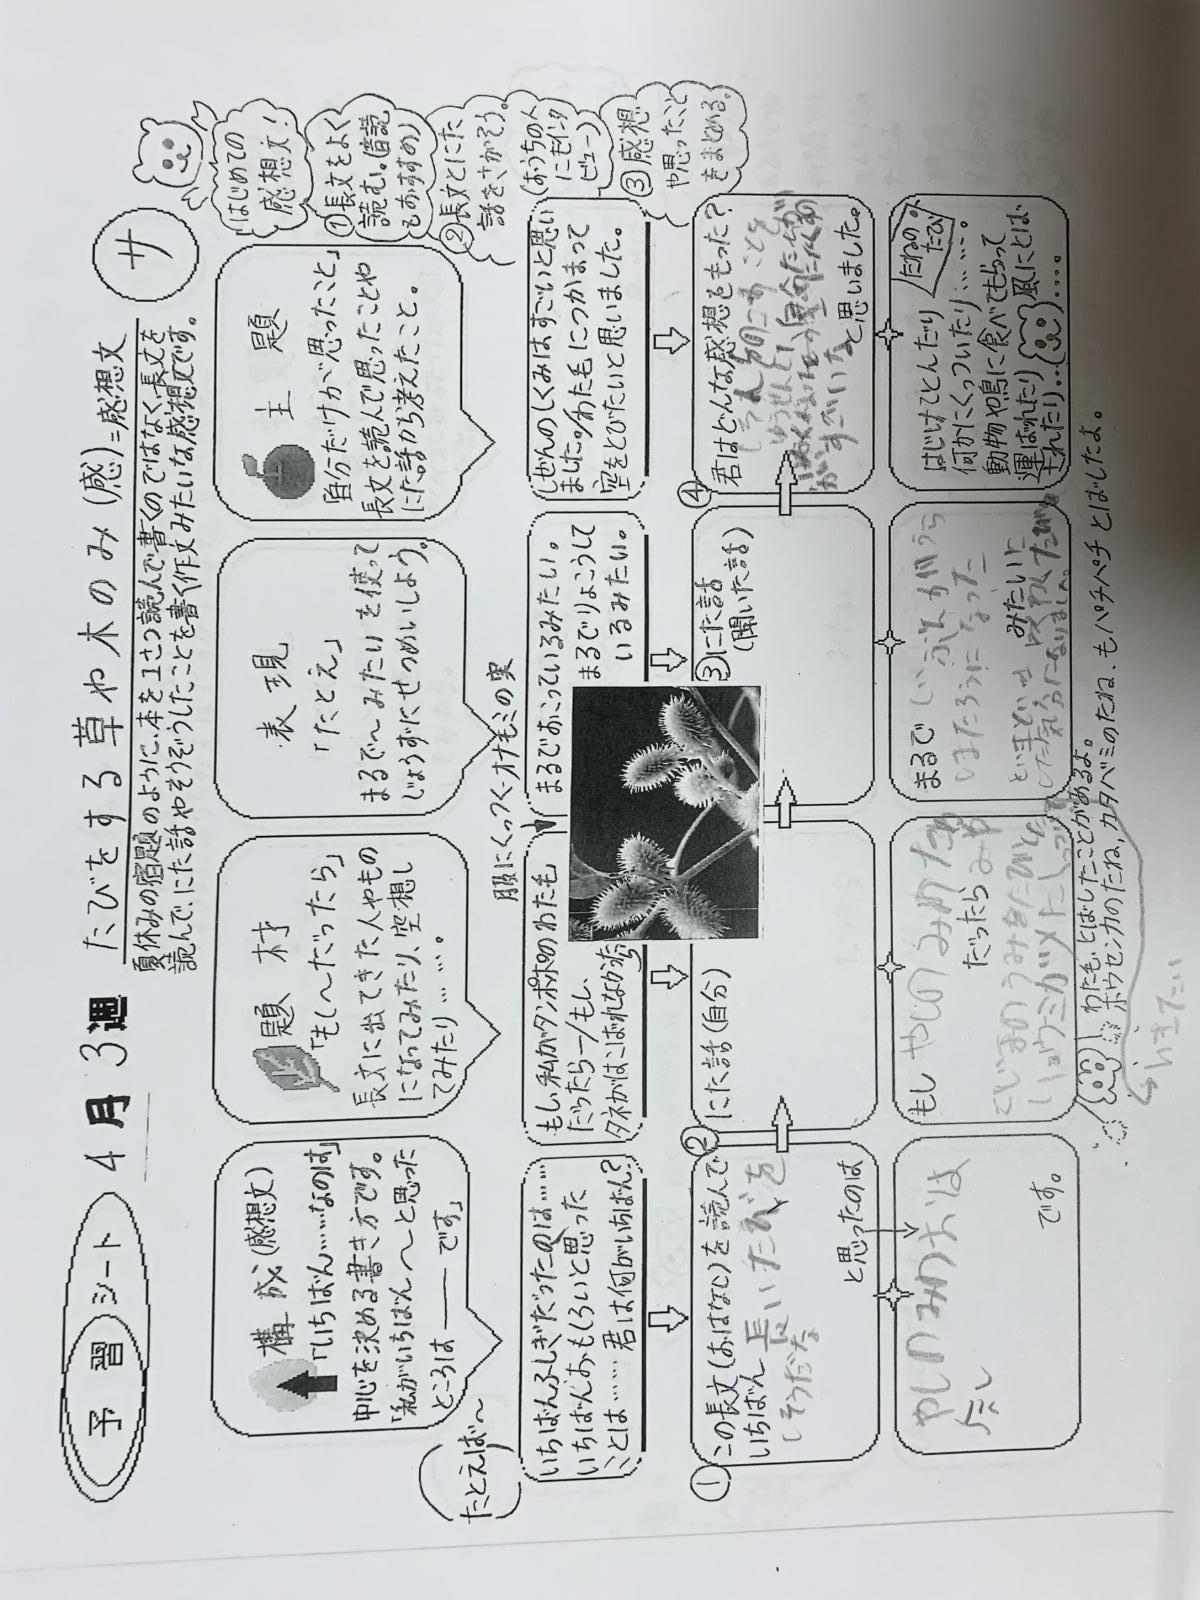 予習シート 4月3週 たびをする草や木のみ(感)=感想文 サ
夏休みの宿題のように、本を1さつ読んで書くのではなく、長文を
読んで、にた話やそうぞうしたことを書く(作文みたいな感想文です。
はじめての
感想文!
①長文をよく
読む。(音読
もおすすめ)
②長文とにた
話をさがそう。
(おうちの人
にもインタ
ビュー)
③感想
や思ったこと
をまとめる。
構成(感想文)
「いちばん……なのは」
中心を決める書き方です。
「私がいちばん〜と思った
ところは――です」
題材
「もし〜だったら」
長文に出てきた人やもの
になってみたり、空想し
てみたり……。
表現
「たとえ」
まるで〜みたい を使って
じょうずにせつめいしよう。
主題
「自分だけが思ったこと」
長文を読んで思ったことや
にた話から考えたこと。
たとえば〜
いちばんふしぎだったのは……
いちばんおもしろいと思った
ことは……君は何がいちばん?
もし、私がタンポポのわた毛
だったら―/もし、
タネがはこばれなかったら
服にくっつくオナモミの実
まるでおこっているみたい。
まるでりょこうして
いるみたい。
しぜんのしくみはすごいと思い
ました。/わた毛につかまって
空をとびたいと思いました。
①この長文(おはなし)を読んで
いちばん 長いたびを
しそうだな
と思ったのは
②にた話(自分)
③にた話
(聞いた話)
④君はどんな感想をもった?
がすごいな
と思いました。
やしのみのおは
なし
です。
もし やしのみのたね
だったら
まるで
みたいに
たねの
たび
はじけてとんだり
何かにくっついたり……。
動物や鳥に食べてもらって
運ばれたり 風にとば
されたり……。
わた毛、とばしたことがあるよ。
ホウセンカのたね、カタバミのたね、もパチパチ とばしたよ。
いきてい